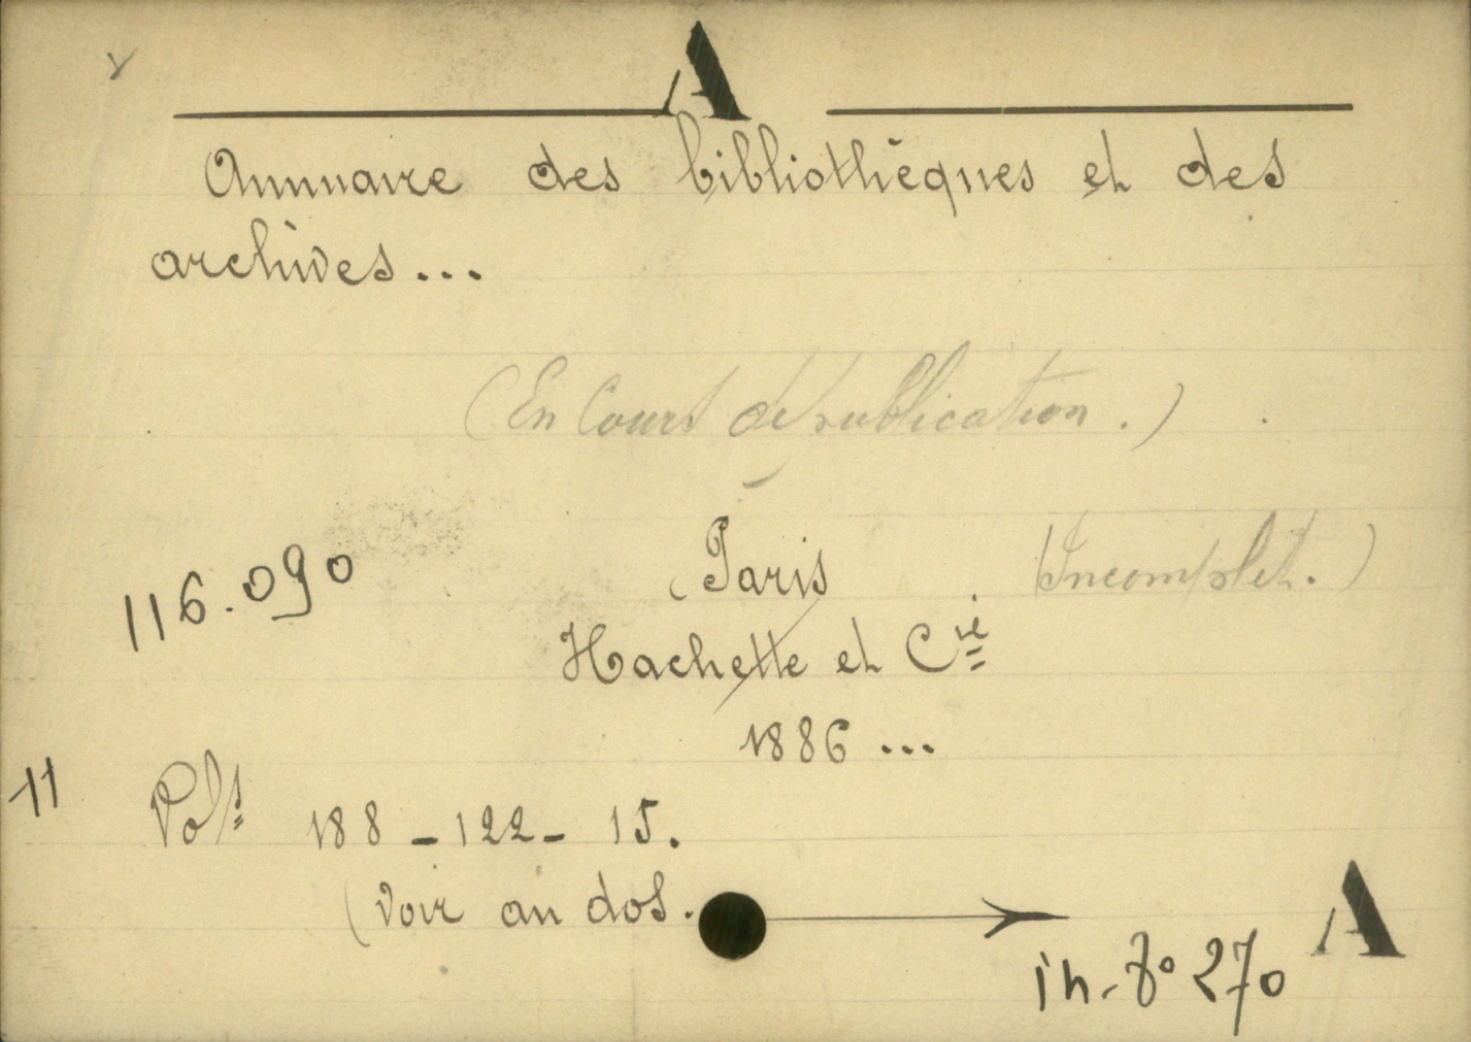 A
Annuaire des bibliothèques et des
archives...
(En Cours de publication.)
116.090
Paris
(Incomplet.)
Hachette et Cie
1886 ...
11
Vols 188 - 122 - 15.
(Voir au dos.
in-8° 270 A